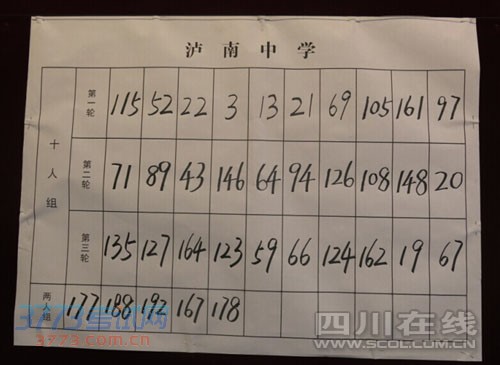 泸南中学
十人组
第一轮 115 52 22 3 13 21 69 105 161 97
第二轮 71 89 43 146 64 94 126 108 148 20
第三轮 135 127 164 123 59 66 124 162 19 67
两人组 177 188 192 167 178
3773考试网
3773.com.cn
四川在线
WWW.SCOL.COM.CN